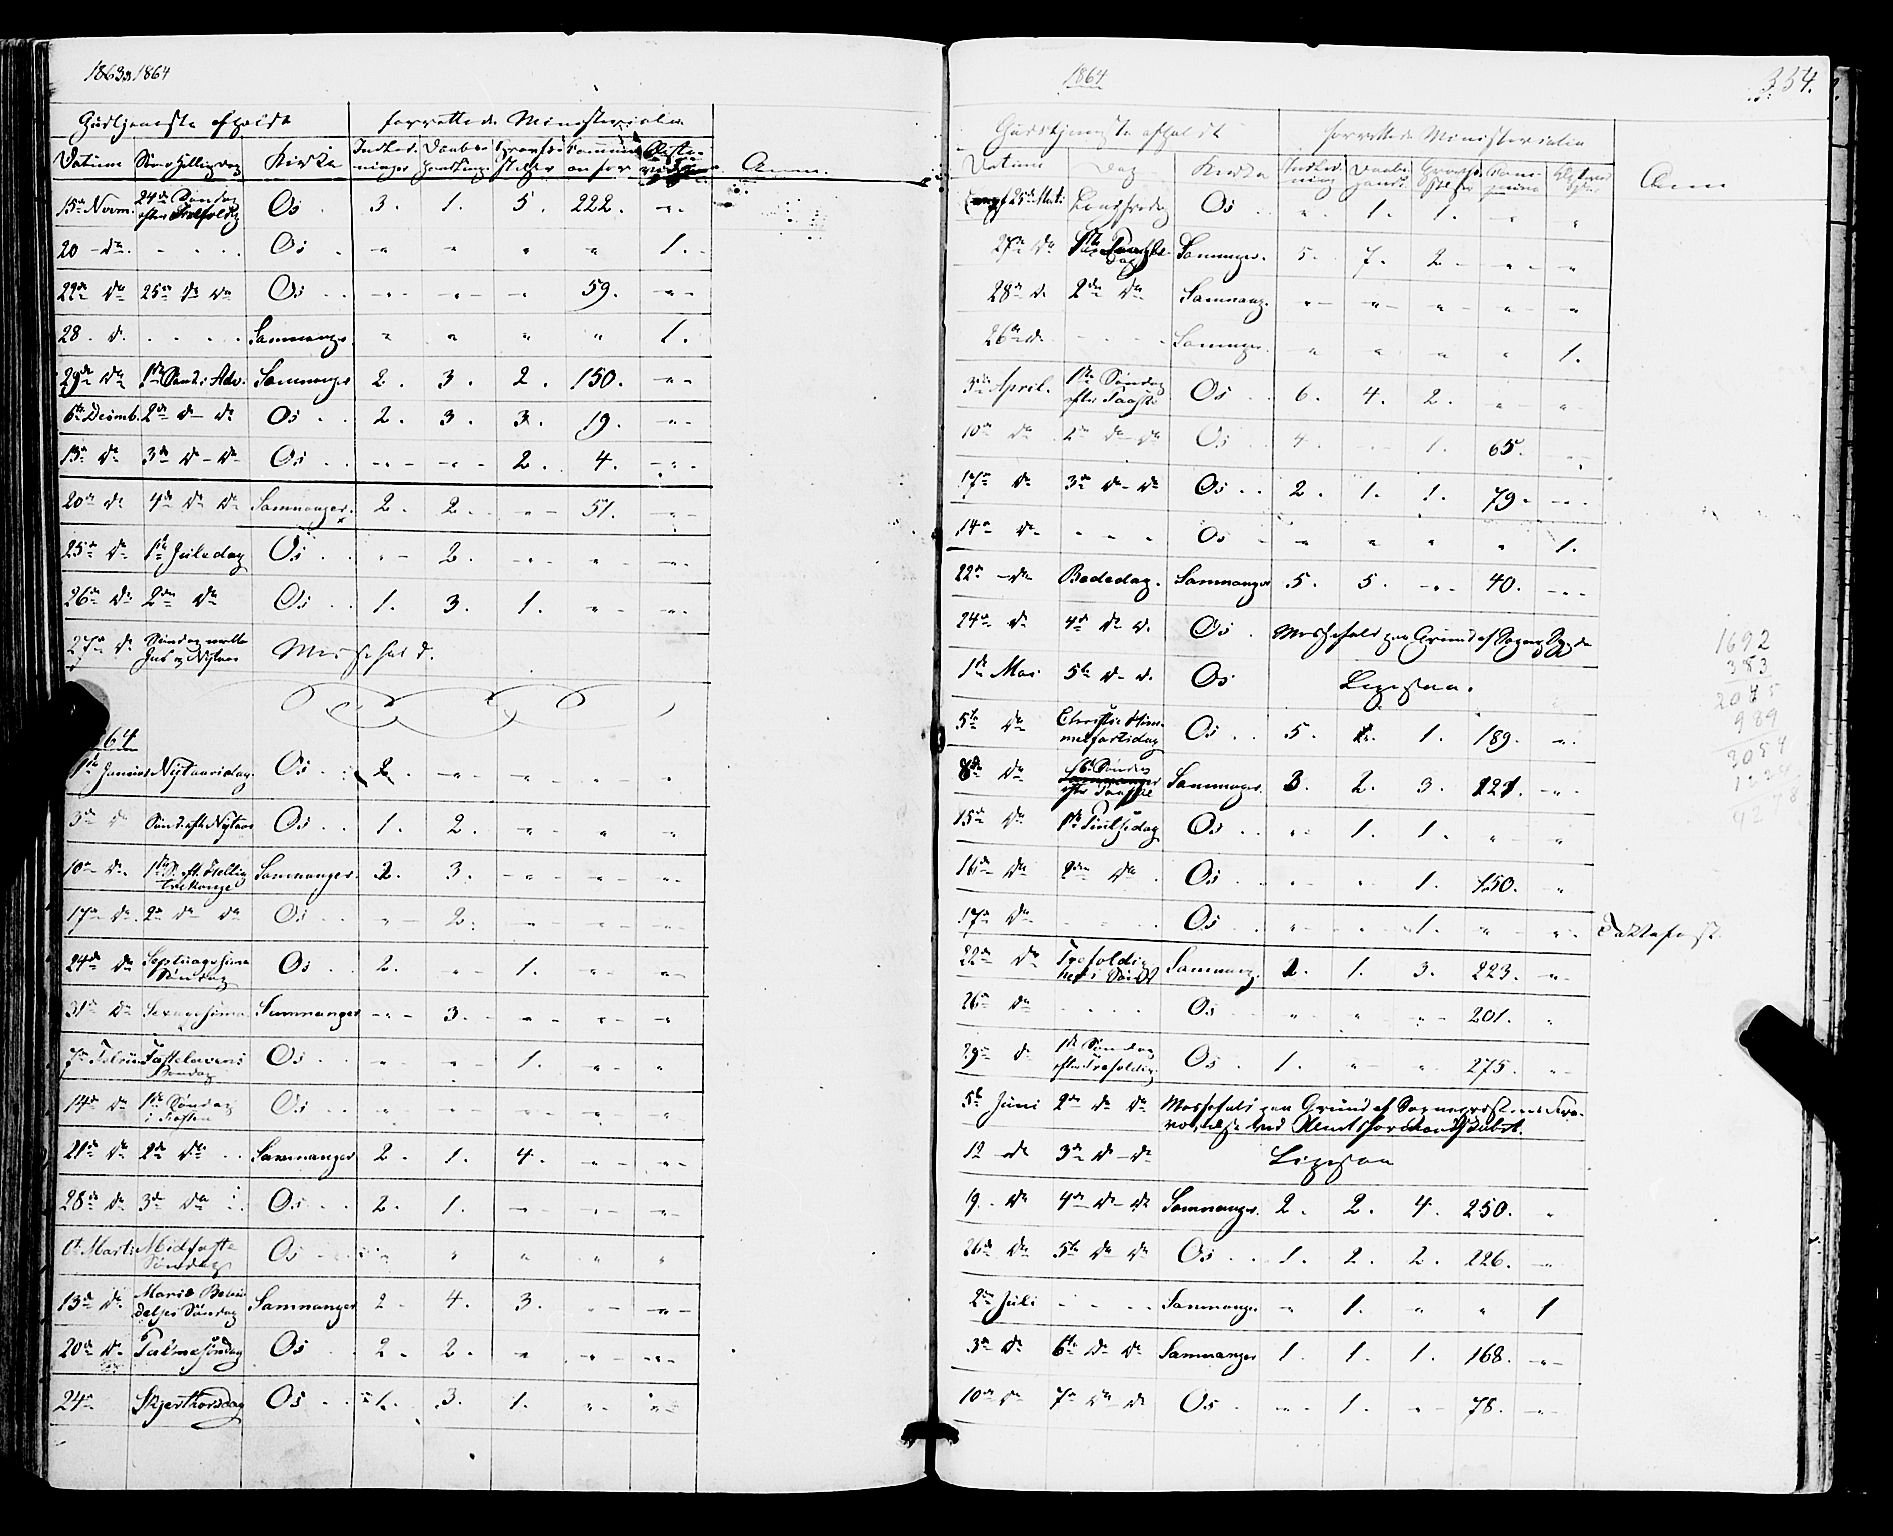 1863 & 1864
Gudstjeneste afholdt forrettede Ministerialia
Datum Kirke Anm.
15de Novm. 24de Søndag efter Trefoldigh Os 3. 1. 5. 222. "
20 - do. - - - Os " " " " 1.
22de do 25de do do Os " " " 59. "
28. d. - - - Samnanger " " " " 1.
29de do 1ste Sønd. i Adv. Samnanger 2. 3. 2. 150. "
6te Decemb. 2de d- do Os 2. 3. 3. 19. "
13de do 3de d- do Os " " 2. 4. "
20de do 4de do do Samnanger 2. 2. " 51. "
25de do 1ste Juledag Os " 2. " " "
26de do 2den do Os 1. 3. 1. " "
27de d. Søndag mellem Jul og Nytaar Messefald.
1864
1ste Januar Nytaarsdag Os 2. " " " "
3de do Sønd. efter Nytaar Os 1. 2. " " "
10de do 1ste S. eft. Hellig tre Konger Samnanger 2. 3. " " "
17de do 2de do do Os " 2. " " "
24de do Septuagesima Søndag Os 2. " 1. " "
31te do Sexagesima Samnanger " 3. " " "
7de Februar Fastelavens Søndag Os " " 1. " "
14de do 1ste Søndag i Fasten Os " " " " "
21de do 2de do Samnanger 2. 1. 4. " "
28de do 3de do Os 2. 1. " " "
6te Marts Midfaste Søndag Os " " " " "
13de do Mariæ Bebudelses Søndag Samnanger 2. 4. 3. " "
20de do Palmesøndag Os 2. 2. " " "
24de Skjærthorsdag Os 1. 3. 1. " "
1864
354.
Gudstjeneste afholdt forrettede Ministerialia
Datum Dag Kirke Anm
25de Marts Langfredag Os " 1. 1. " "
27de do 1ste Paaskedag Samnanger. 5. 7. 2. " "
28de d. 2den do Samnang. " " " " "
26de do - - - Samnanger " " " " 1.
3die April. 1ste Søndag efter Paaske Os 6. 4. 2. " "
10de do 2de d- do Os 4. - 1. 65. "
17de do 3de d- do Os 2. 1. 1. 79. "
14de do " " " Os " " " " 1.
22de do Bededag. Samnanger 5. 5. " 40. "
24de do 4de do d. Os Messefald paa Grund af Sogne
1ste Mai 5te d- d. Os Ligesaa.
5te do Christi Himmelfartsdag Os 5. 1. 1. 189. "
8de do 6te Søndag efter Paaske Samnanger. 3. 2. 3. 121. "
15de do 1ste Pintsedag Os " 1. 1. " "
16de do 2den do Os " " 1. 150. "
17de do Os " " 1. " "
22de do Trefoldigheds Søndag Samnang. 2. 1. 3. 223. "
26de do - - - Os " " " 201. "
29de d 1ste Søndag efter Trefoldigh. Os 1. " " 275. "
5te Juni 2de do do Messefald paa Grund af Sognepræstens Fra-
12 - do 3de d- do Ligesaa
19. do 4de do do Samnanger. 2. 2. 4. 250. "
26de do 5te do do Os 1. 2. 2. 126. "
2den Juli - - - Samnanger " 1. " " 1
3de do 6te do do Samnanger 1. 1. 1. 168. "
10de do 7de do do Os " 1. " 78. "
1692
383
2075
989